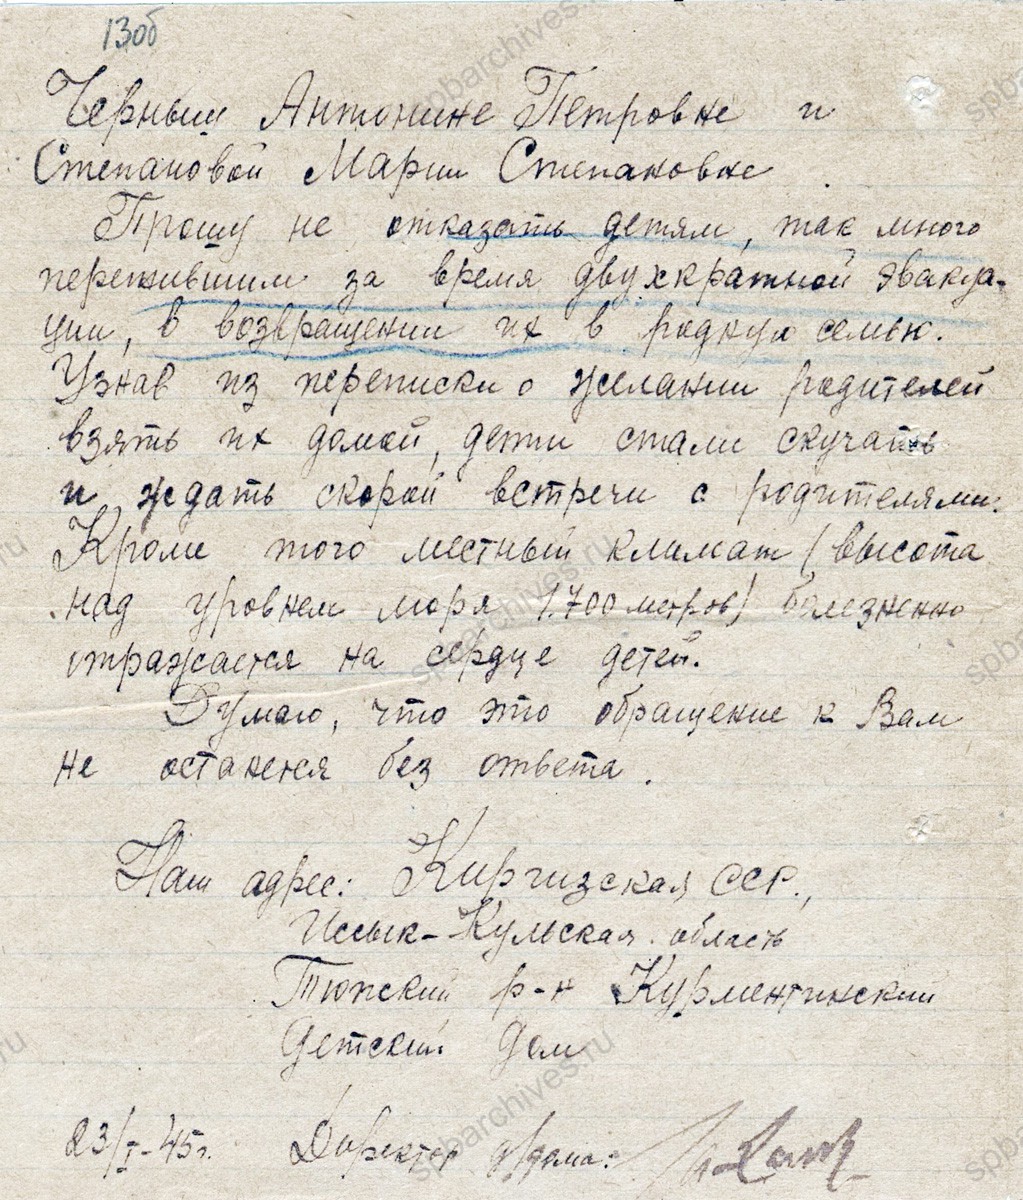 13об
Черныш Антонине Петровне и
Степановой Марии Степановне
Прошу не отказать детям, так много
пережившим за время двухкратной эвакуа-
ции, в возвращении их в родную семью.
Узнав из переписки о желании родителей
взять их домой, дети стали скучать
и ждать скорой встречи с родителями.
Кроме того местный климат (высота
над уровнем моря 1.700 метров) болезненно
отражается на сердце детей.
Думаю, что это обращение к Вам
не останется без ответа.
Наш адрес: Киргизская ССР,
Иссык-Кульская область
Тюпский р-н Курментинский
Детский Дом
23/I-45г. Директор д/дома:
spbarchives.ru